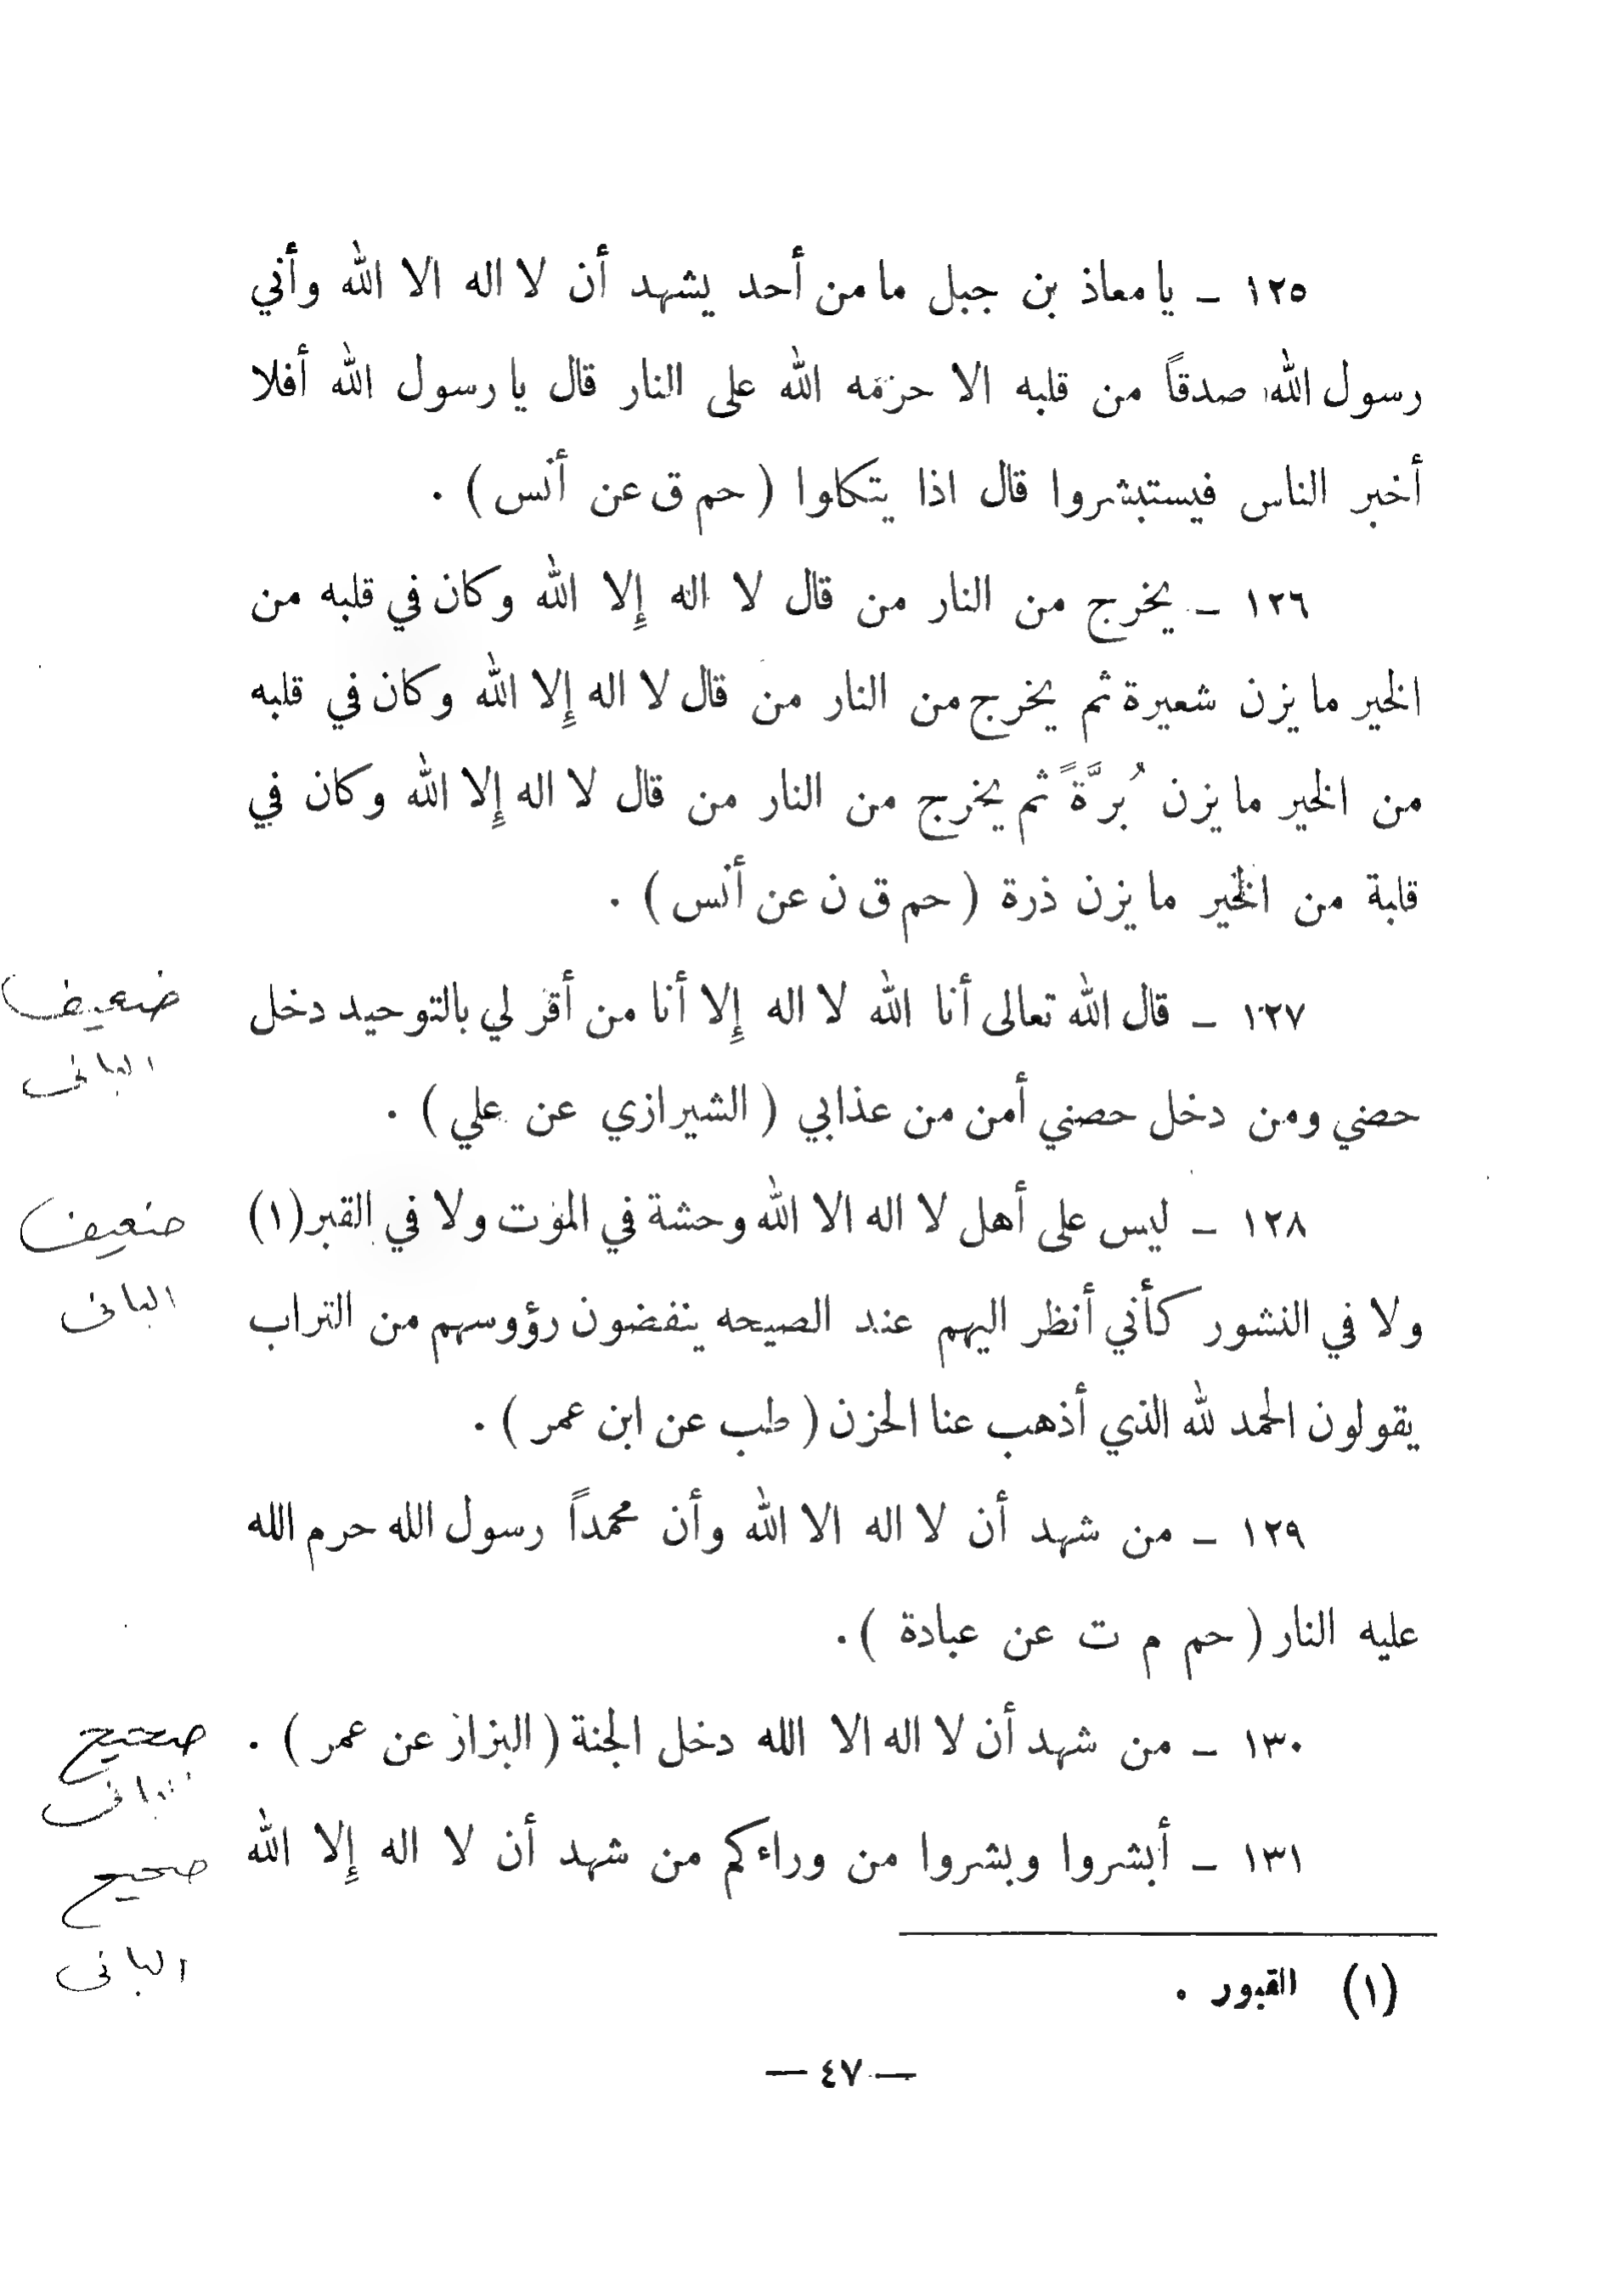 ١٢٥ ـ يا معاذ بن جبل ما من أحد يشهد أن لا اله الا الله وأني
رسول الله صدقاً من قلبه الا حرمه الله على النار قال يا رسول الله أفلا
أخبر الناس فيستبشروا قال اذا يتكلوا ( حم ق عن أنس ) .
١٢٦ ـ يخرج من النار من قال لا اله إلا الله وكان في قلبه من
الخير ما يزن شعيرة ثم يخرج من النار من قال لا اله إلا الله وكان في قلبه
من الخير ما يزن بُرَّةً ثم يخرج من النار من قال لا اله إلا الله وكان في
قلبة من الخير ما يزن ذرة ( حم ق ن عن أنس ) .
١٢٧ ـ قال الله تعالى أنا الله لا اله إلا أنا من أقر لي بالتوحيد دخل
ضعيف
البانى
حصني ومن دخل حصني أمن من عذابي ( الشيرازي عن علي ) .
١٢٨ ـ ليس على أهل لا اله الا الله وحشة في الموت ولا في القبر(١)
ضعيف
البانى
ولا في النشور كأني أنظر اليهم عند الصيحه ينفضون رؤوسهم من التراب
يقولون الحمد لله الذي أذهب عنا الحزن ( طب عن ابن عمر ) .
١٢٩ ـ من شهد أن لا اله الا الله وأن محمداً رسول الله حرم الله
عليه النار ( حم م ت عن عبادة ) .
١٣٠ ـ من شهد أن لا اله الا الله دخل الجنة ( البزاز عن عمر ) .
صحيح
البانى
١٣١ ـ أبشروا وبشروا من وراءكم من شهد أن لا اله إلا الله
صحيح
البانى
(١) القبور .
— ٤٧ —